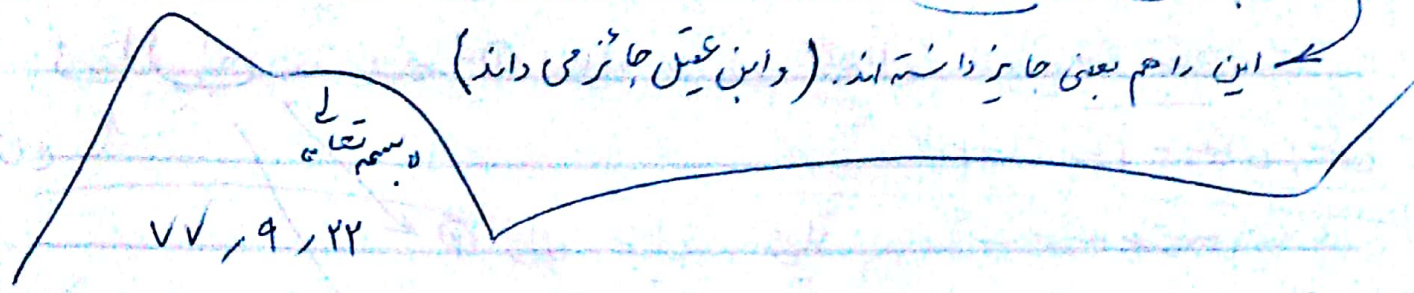 این را هم بعضی جایز دانسته اند. (و ابن عقیل جائز می داند)
بسمه تعالی
۷۷٫۹٫۲۲